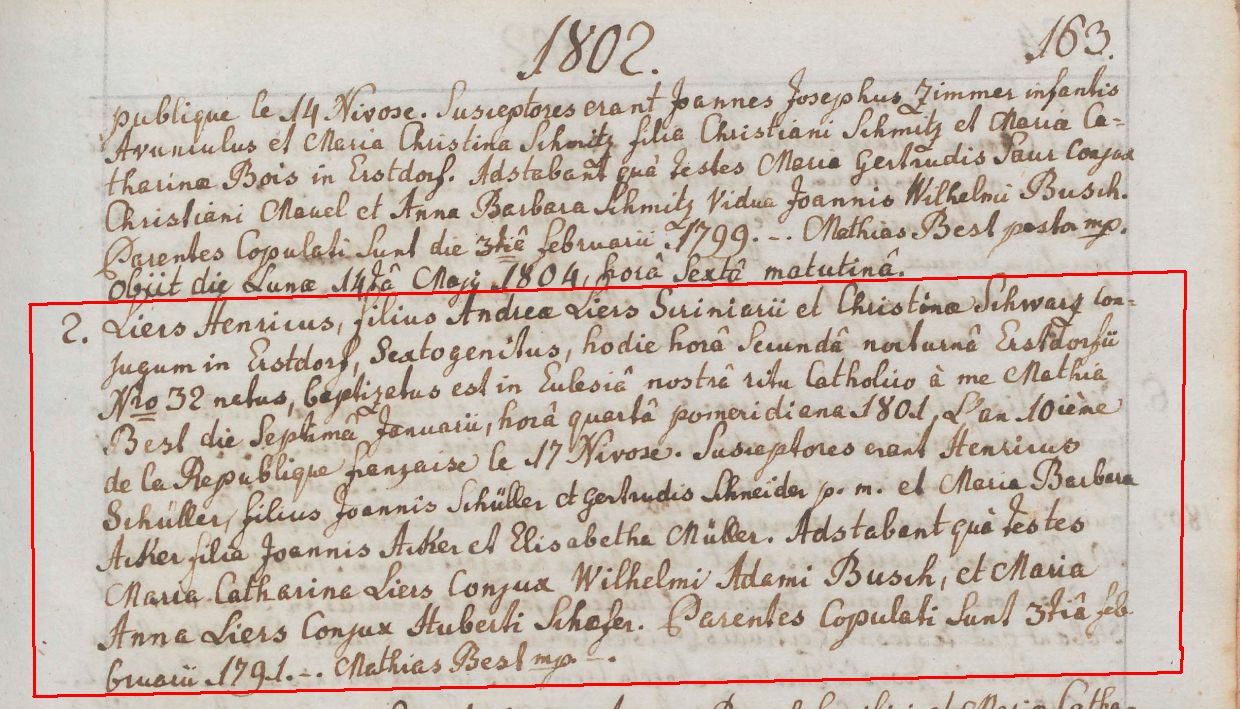 1802.
163.
publique le 14 Nivose. Susceptores erant Joannes Josephus Zimmer infantis
Avunculus et Maria Christina Schmitz filia Christiani Schmitz et Mariæ Ca=
tharinæ Bois in Erstdorf. Adstabant quà testes Maria Gertrudis Saur Conjux
Christiani Mauel et Anna Barbara Schmitz Vidua Joannis Wilhelmi Busch.
Parentes Copulati Sunt die 3tiâ februarii 1799. -.- Mathias Best pastor mp.
Obiit die Lunæ 14tâ Maji 1804, horâ Sextâ matutinâ.
2. Liers Henricus, filius Andreæ Liers Scriniarii et Christinæ Schwarz Con=
jugum in Erstdorf, Sextogenitus, hodie horâ Secundâ nocturnâ Erstdorfii
Nro 32 natus, baptizatus est in Eclesiâ nostrâ ritu Catholico à me Mathia
Best die Septimâ Januarii, horâ quartâ pomeridiana 1801, L'an 10ième
de la Republique française le 17 Nivose. Susceptores erant Henricus
Schüller, filius Joannis Schüller et Gertrudis Schneider p. m. et Maria Barbara
Acker filia Joannis Acker et Elisabetha Müller. Adstabant quà testes
Maria Catharina Liers Conjux Wilhelmi Adami Busch, et Maria
Anna Liers Conjux Huberti Schefer. Parentes Copulati Sunt 3tiâ feb
bruarii 1791. -.- Mathias Best mp. -.